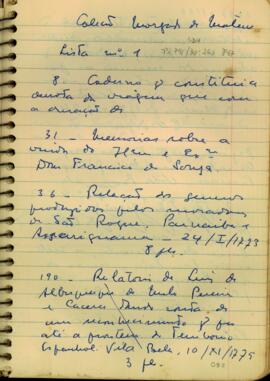 Coleção Morgado de Mateus
Lista nº 1
8 - Caderno q constitui a
da viagem que
a criação de
31 - Memorias sobre a
vinda do Ilmo e Exmo
Dom Francisco de Souza
36 - Relação dos generos
produzidos pelos moradores
de São Roque, Parnaiba e
Araçariguama - 24/I/1773
8 fls.
190 - Relatorio de Luis de
Albuquerque de Mello Pereira
e Caceres dando conta de
um reconhecimento q fez
até a fronteira do Territorio
Espanhol. Vila Bela, 10/XI/1775
3 fl.